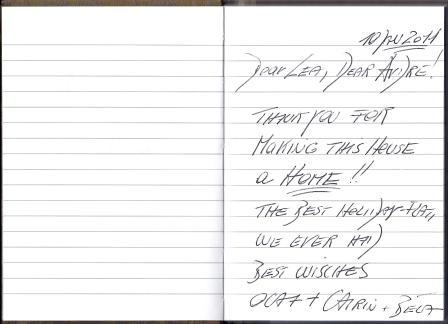 2011
Dear LEA, DEAR ANDRE!
THANK YOU FOR
MAKING THIS HOUSE
a HOME!!
THE BEST HOLIDAY-FLAT,
WE EVER HAD
BEST WISCHES
+ CATRIN + BELA